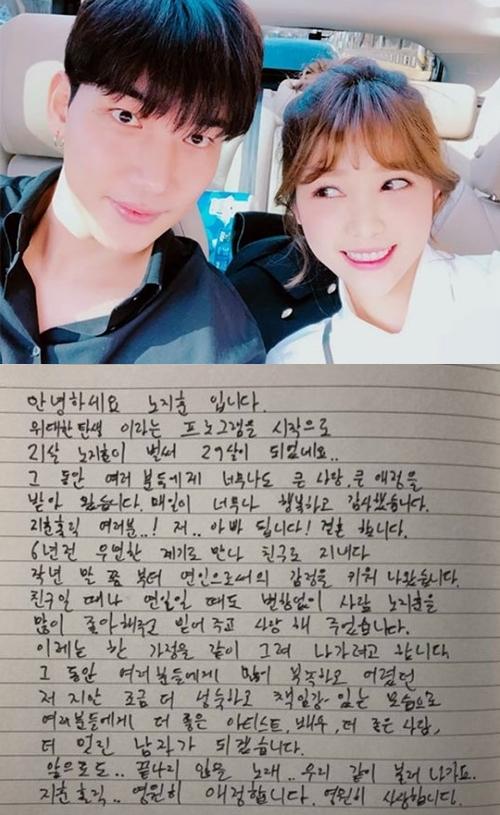 안녕하세요 노지훈 입니다.
위대한탄생 이라는 프로그램을 시작으로
21살 노지훈이 벌써 29살이 되었네요..
그 동안 여러 분들에게 너무나도 큰 사랑, 큰 애정을
받아 왔습니다. 매일이 너무나 행복하고 감사했습니다.
지훈홀릭 여러분..! 저.. 아빠 됩니다! 결혼 합니다.
6년전 우연한 계기로 만나 친구로 지내다
작년 말 쯤 부터 연인으로서의 감정을 키워 나왔습니다.
친구일 때나 연인일 때도 변함없이 사람 노지훈을
많이 좋아해주고 믿어 주고 사랑 해 주었습니다.
이제는 한 가정을 같이 그려 나가려고 합니다
그 동안 여러분들에게 많이 부족하고 어렸던
저 지만 조금 더 성숙하고 책임감 있는 모습으로
여러분들에게 더 좋은 아티스트, 배우, 더 좋은 사람,
더 멋진 남자가 되겠습니다.
앞으로도.. 끝나지 않을 노래.. 우리 같이 불러 나가요.
지훈홀릭.. 영원히 애정합니다. 영원히 사랑합니다.